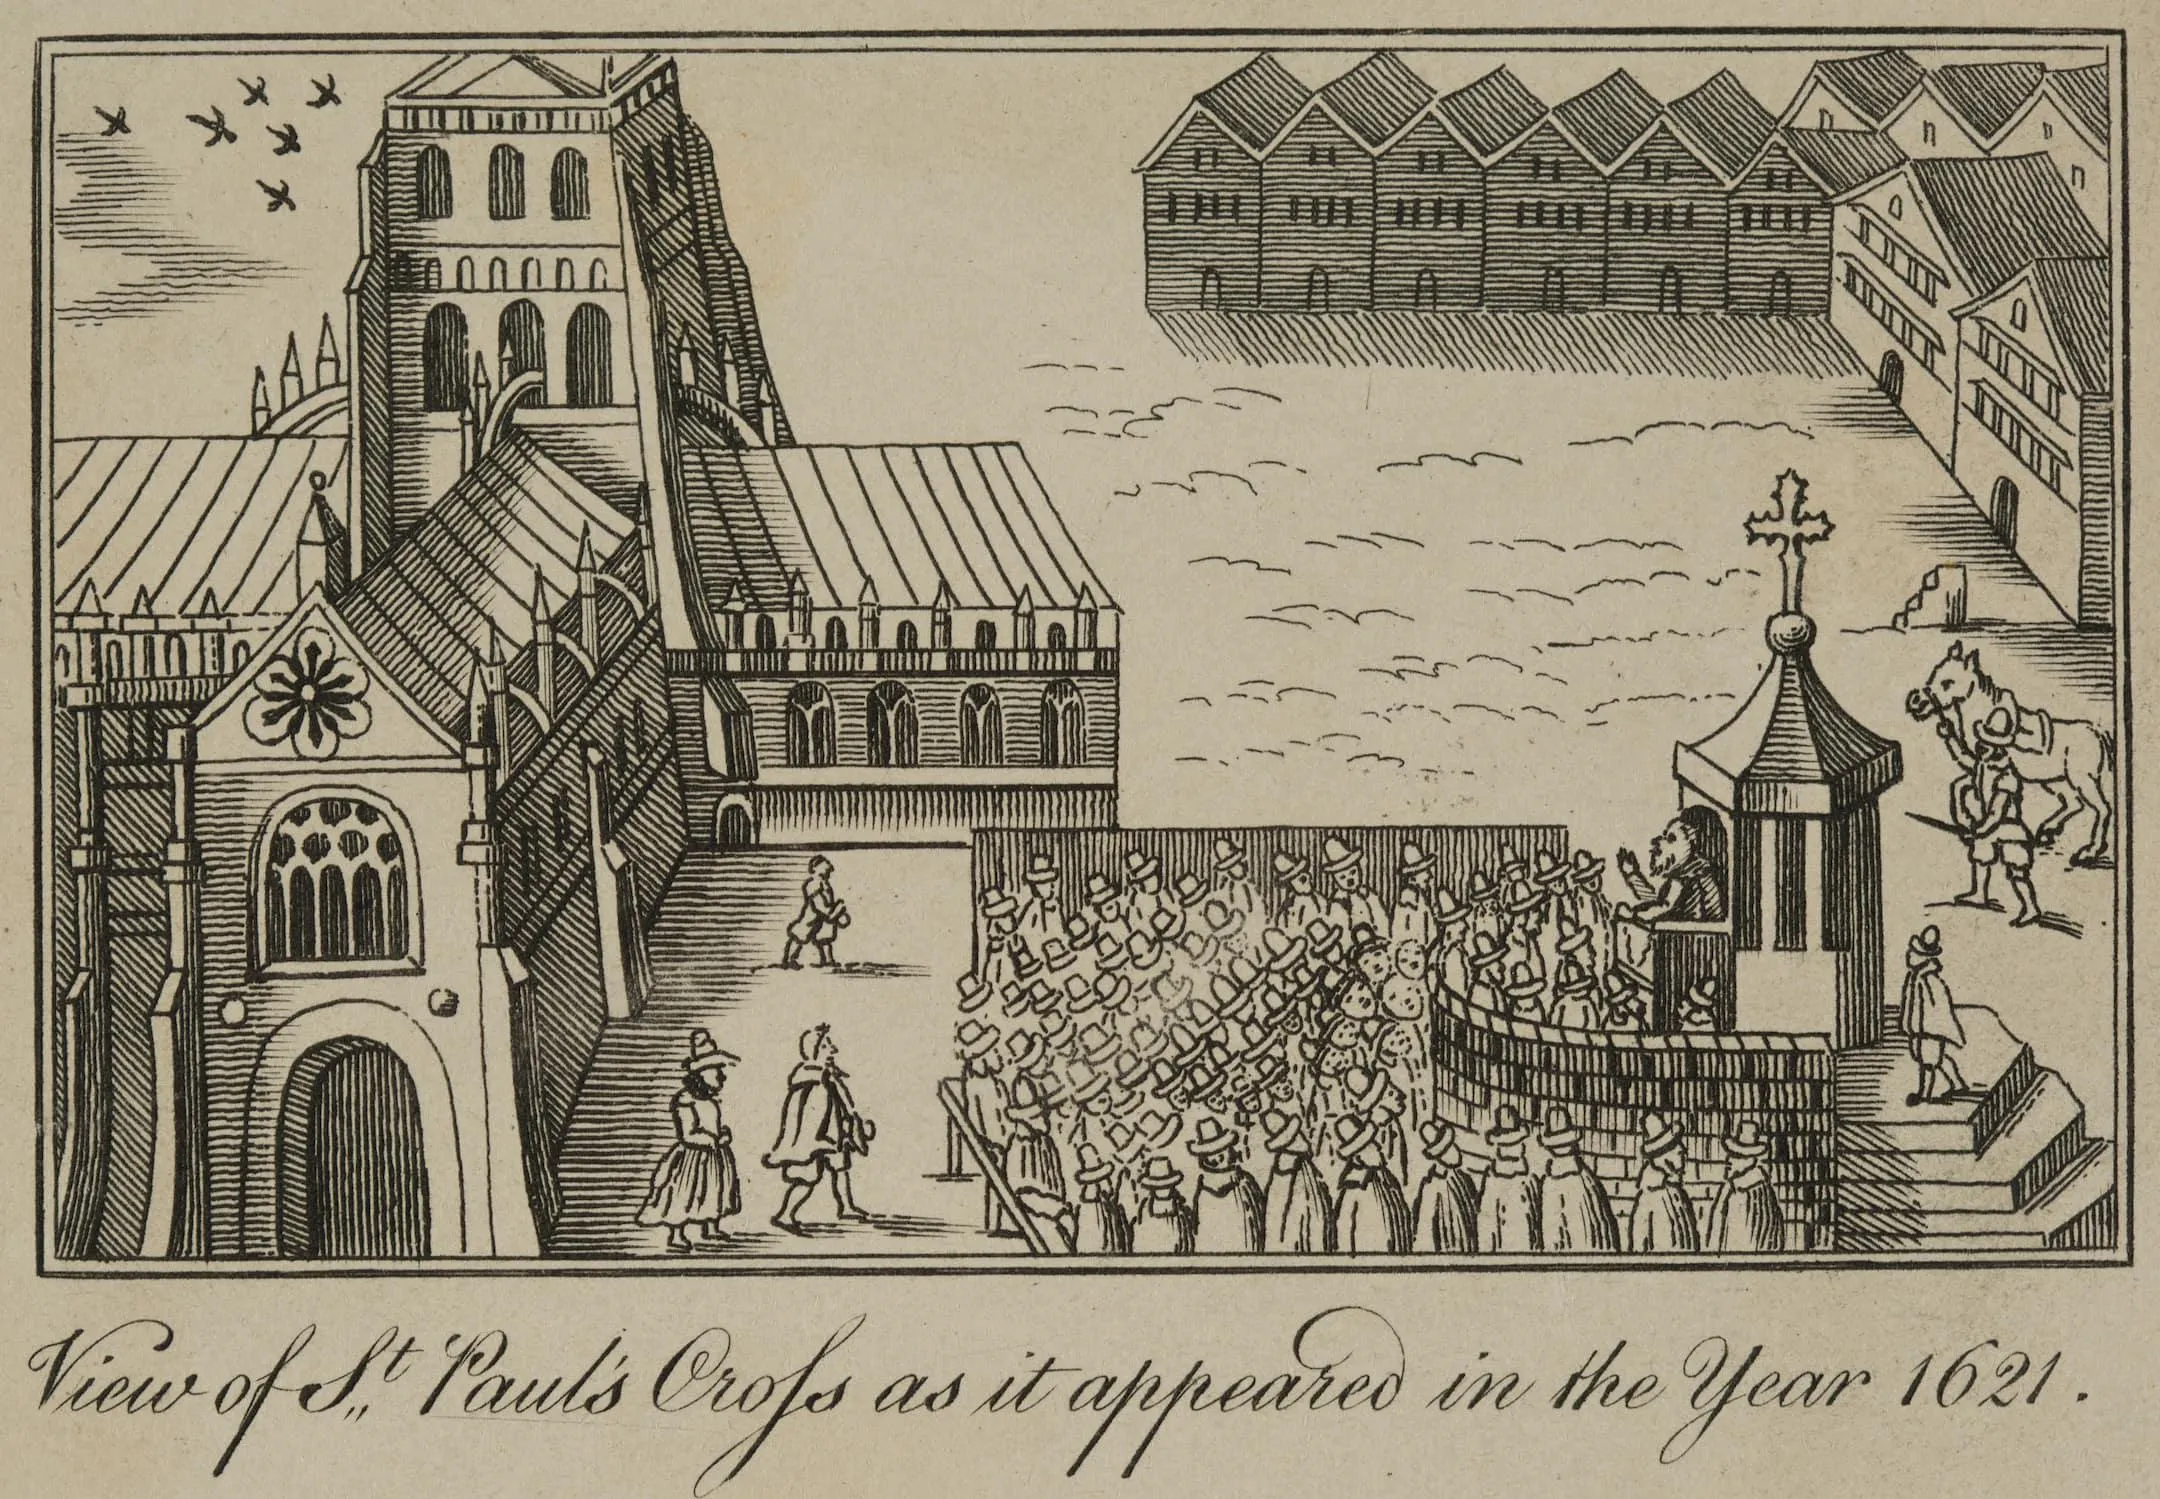 View of St. Paul's Croſs as it appeared in the Year 1621.